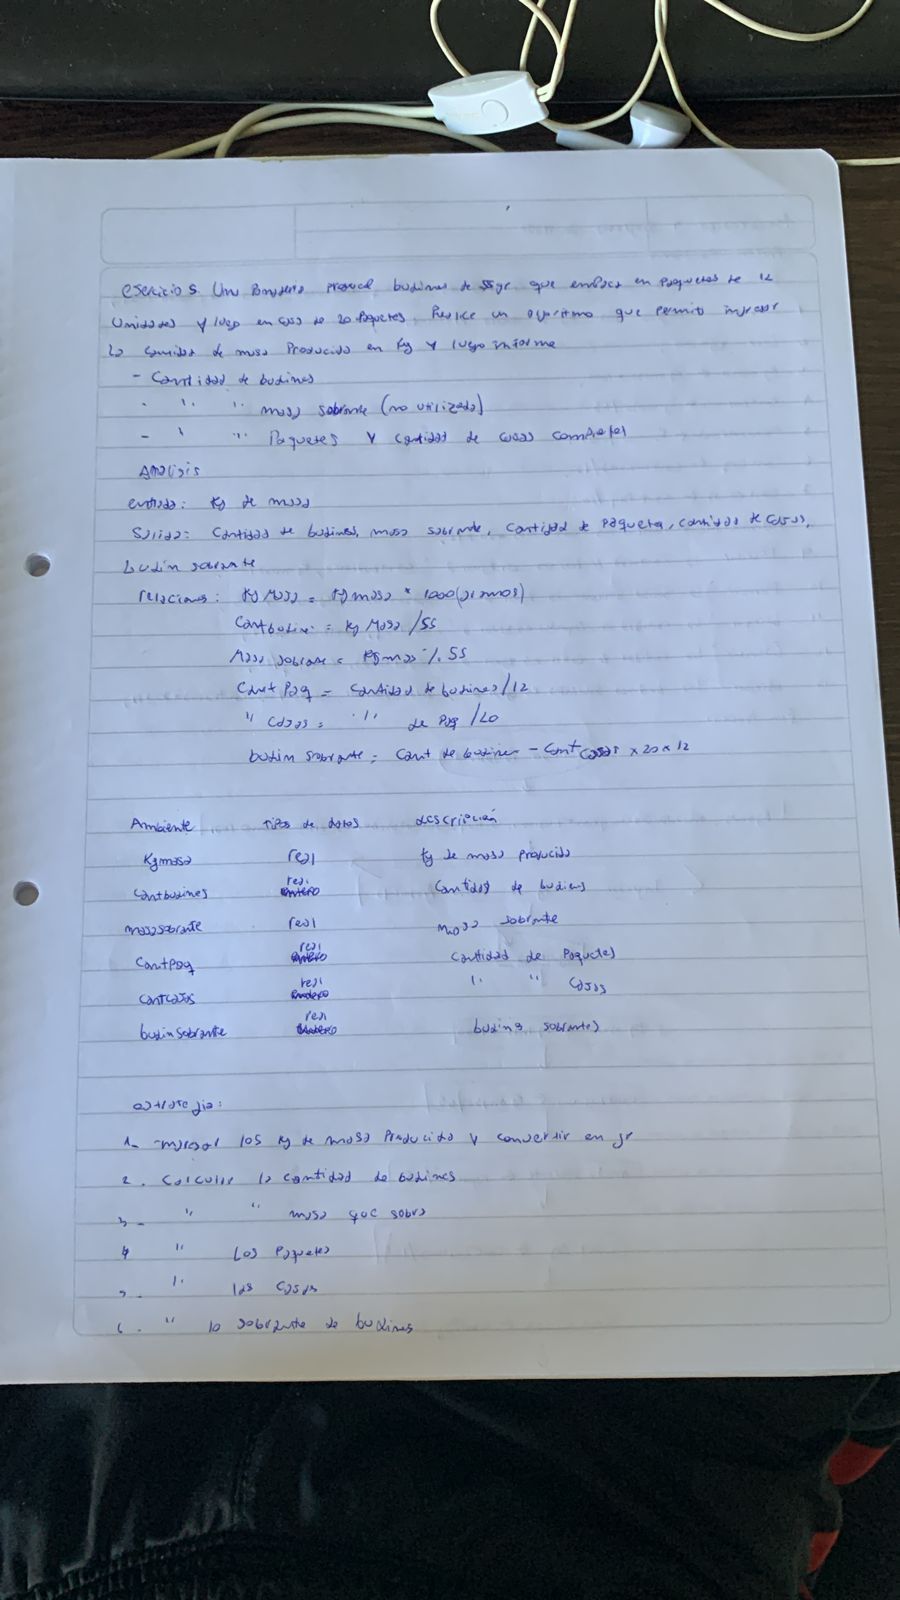 ejercicio 5. Una Panaderia produce budines de 55gr que embasa en paquetes de 12
Unidades y luego en cajas de 20 Paquetes. Realice un algoritmo que permita ingresar
la cantidad de masa Producida en Kg y luego informe
- Cantidad de budines
- " " masa sobrante (no utilizada)
- " " Paquetes y cantidad de cajas completas
Analisis
entrada: Kg de masa
Salida: Cantidad de budines, masa sobrante, cantidad de paquetes, cantidad de cajas,
budin sobrante
relaciones: KgMasa = Kgmasa * 1000 (gramos)
Cantbudines = KgMasa /55
Masa sobrante = Kgmasa % 55
Cant Paq = cantidad de budines/12
" Cajas = " de Paq /20
budin sobrante = Cant de budines - Cant cajas x 20 x 12
Ambiente tipos de datos descripción
Kgmasa real Kg de masa producida
Cantbudines real Cantidad de budines
masasobrante real masa sobrante
CantPaq real cantidad de Paquetes
Cantcajas real " " Cajas
budinsobrante real budines sobrantes
estrategia:
1- ingresar los Kg de masa Producida y convertir en gr
2. Calcular la cantidad de budines
3- " " masa que sobra
4 " Los Paquetes
5. " las Cajas
6. " lo sobrante de budines